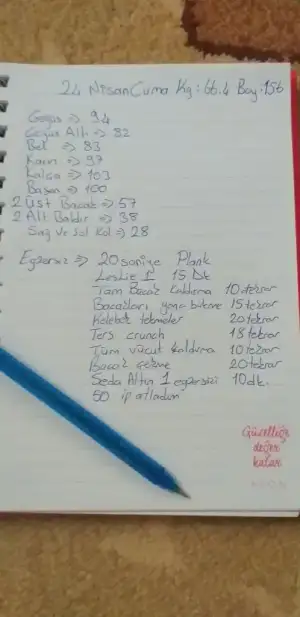 24 Nisan Cuma Kg: 66.4 Boy: 156
Göğüs => 94
Göğüs Altı => 82
Bel => 83
Karın => 97
Kalça => 103
Basen => 100
2 Üst Bacak => 57
2 Alt Baldır => 38
Sağ ve Sol Kol => 28
Egzersiz => 20 saniye Plank
Leslie 1 15 Dk
Tam Bacak Kaldırma 10 tekrar
Bacakları yana 15 tekrar
Kelebek tekmeler 20 tekrar
Ters crunch 18 tekrar
Tüm vücut kaldırma 10 tekrar
Bacak çekme 20 tekrar
Seda Altın 1 egzersizi 10 dk.
50 ip atladım
Güzelliğe
değer
katar